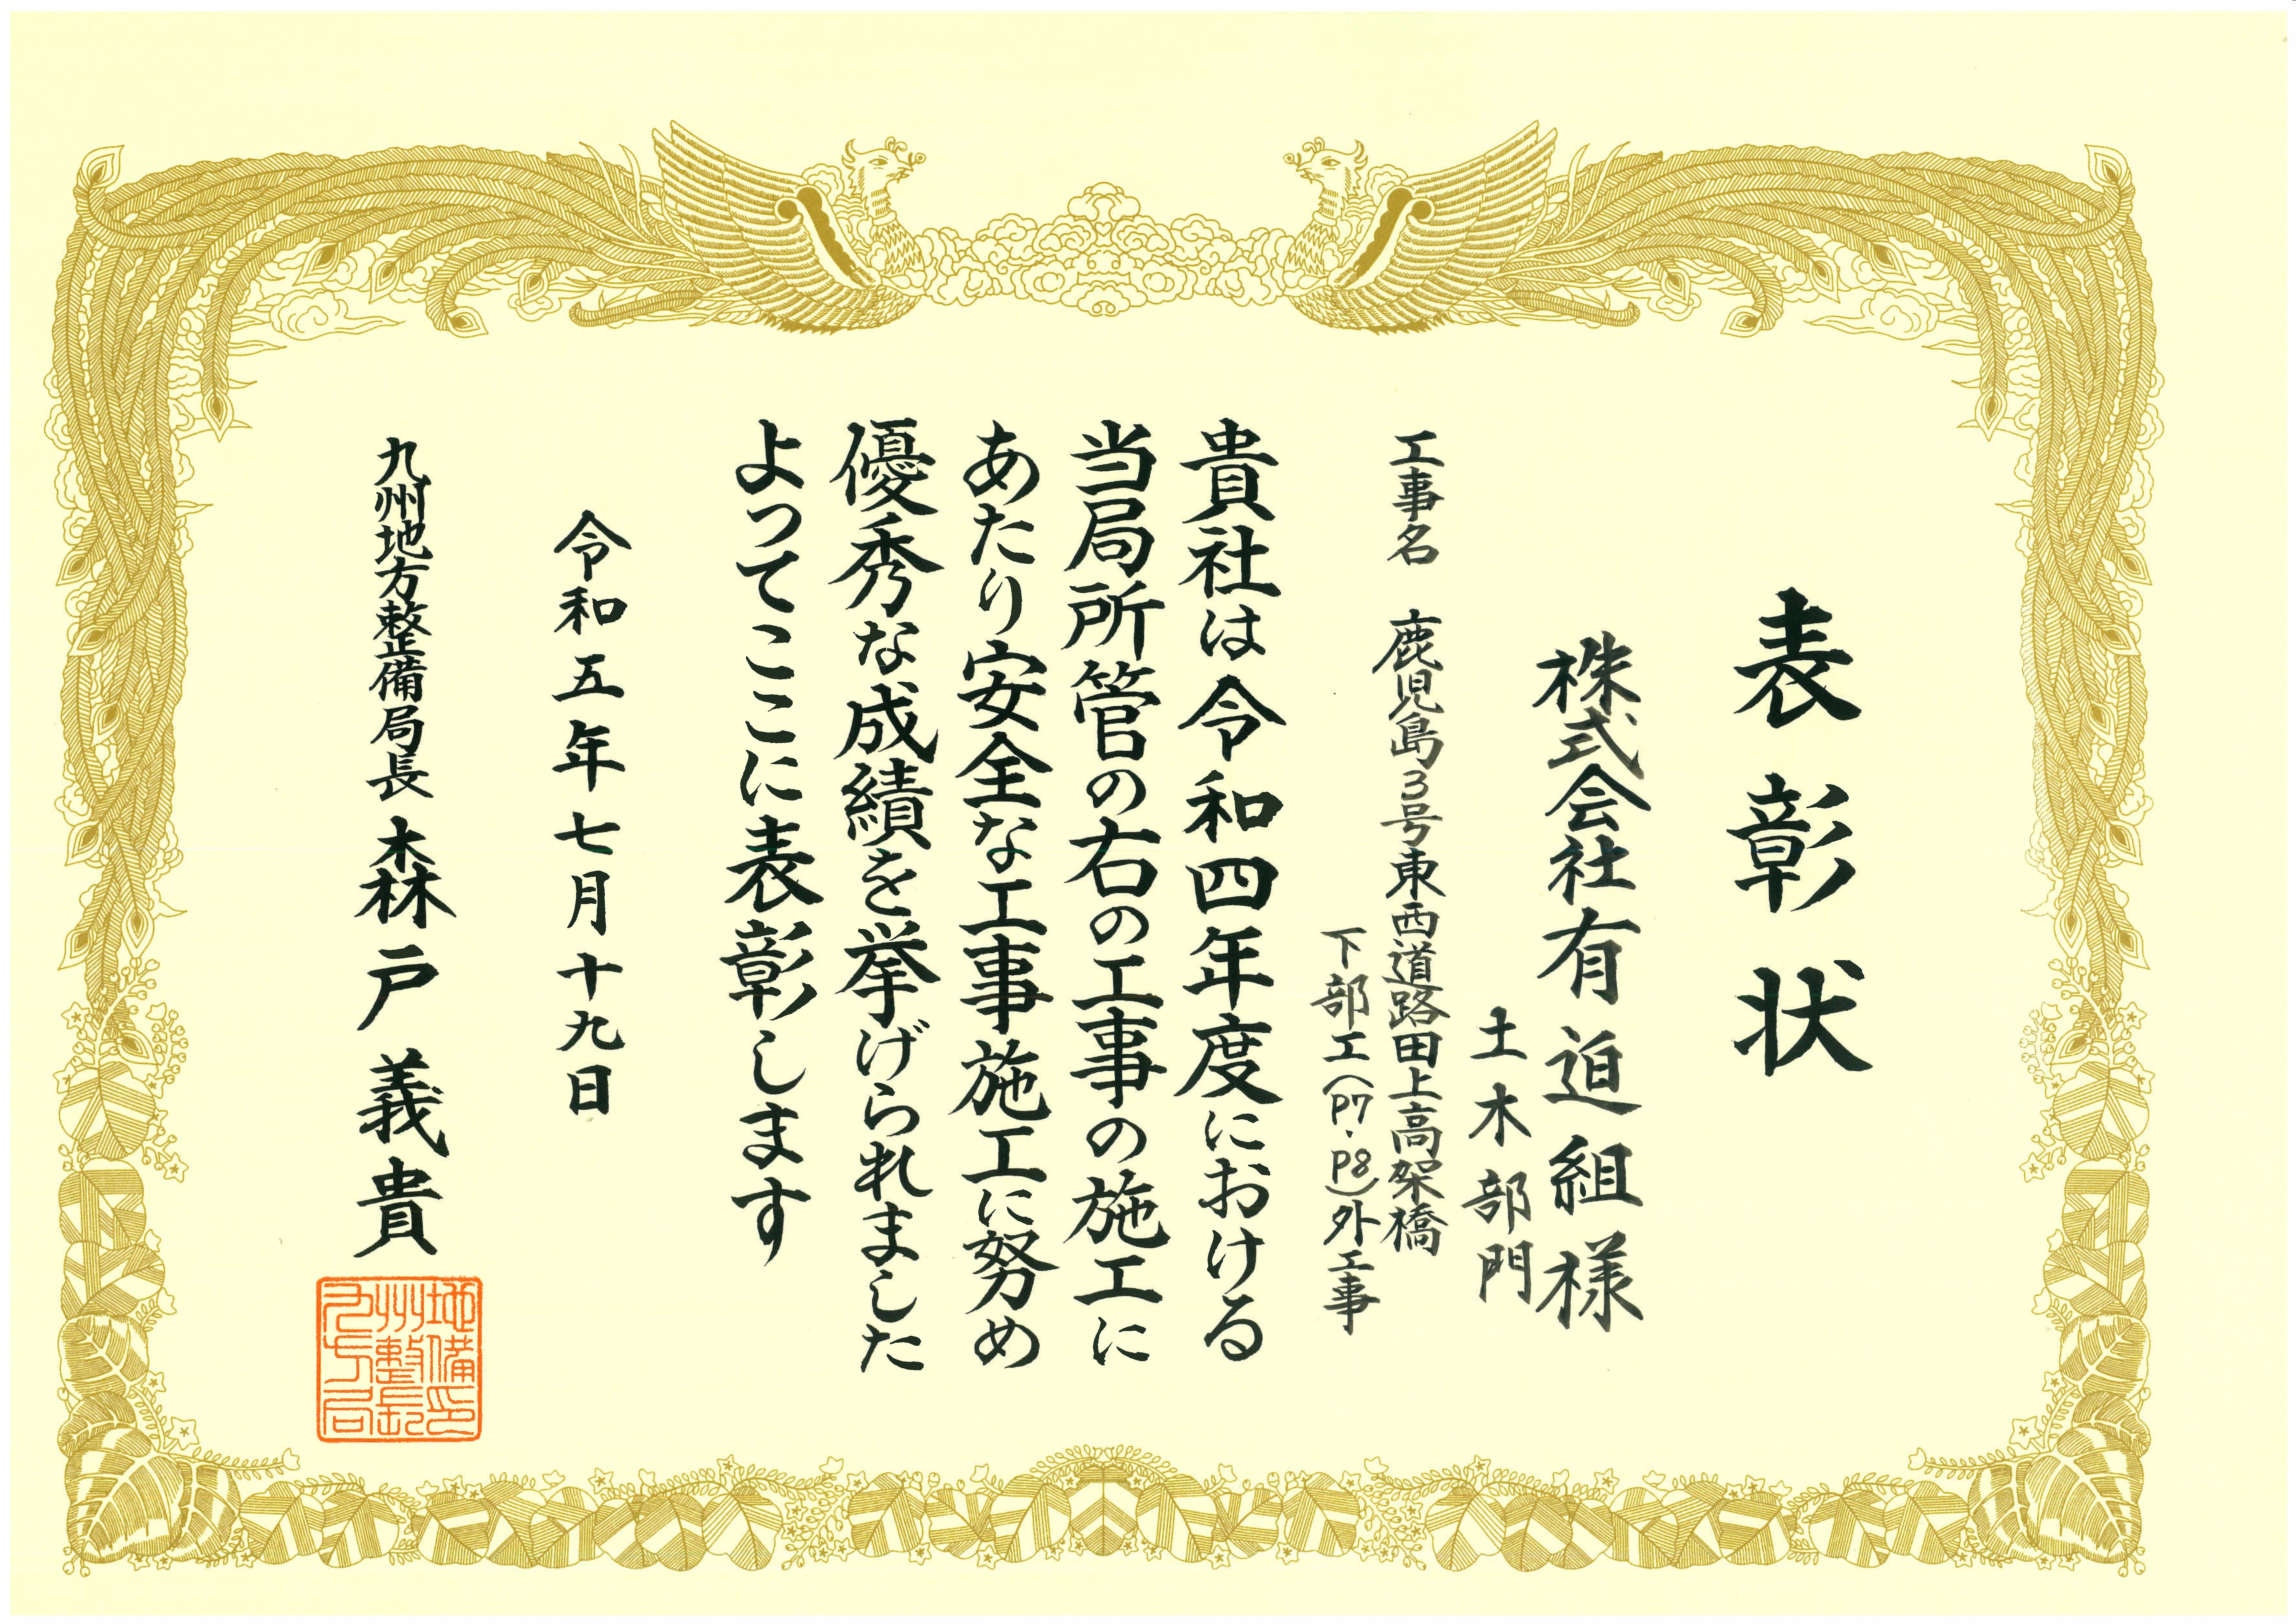 表彰状
株式会社有迫組様
土木部門
工事名　鹿児島3号東西道路田上高架橋
下部工(P7・P8)外工事
貴社は令和四年度における
当局所管の右の工事の施工に
あたり安全な工事施工に努め
優秀な成績を挙げられました
よってここに表彰します
令和五年七月十九日
九州地方整備局長　森戸義貴
九州地方整備局長印